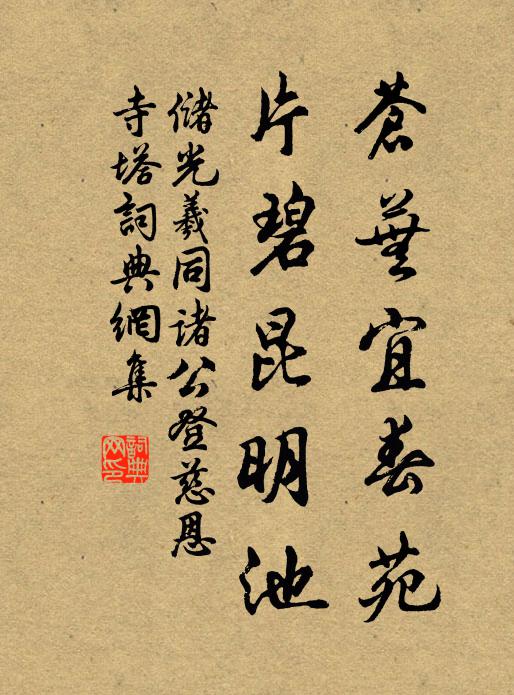 蒼蕪宜春苑
片碧昆明池
儲光羲同諸公登慈恩
寺塔詞典網集
詞典网印